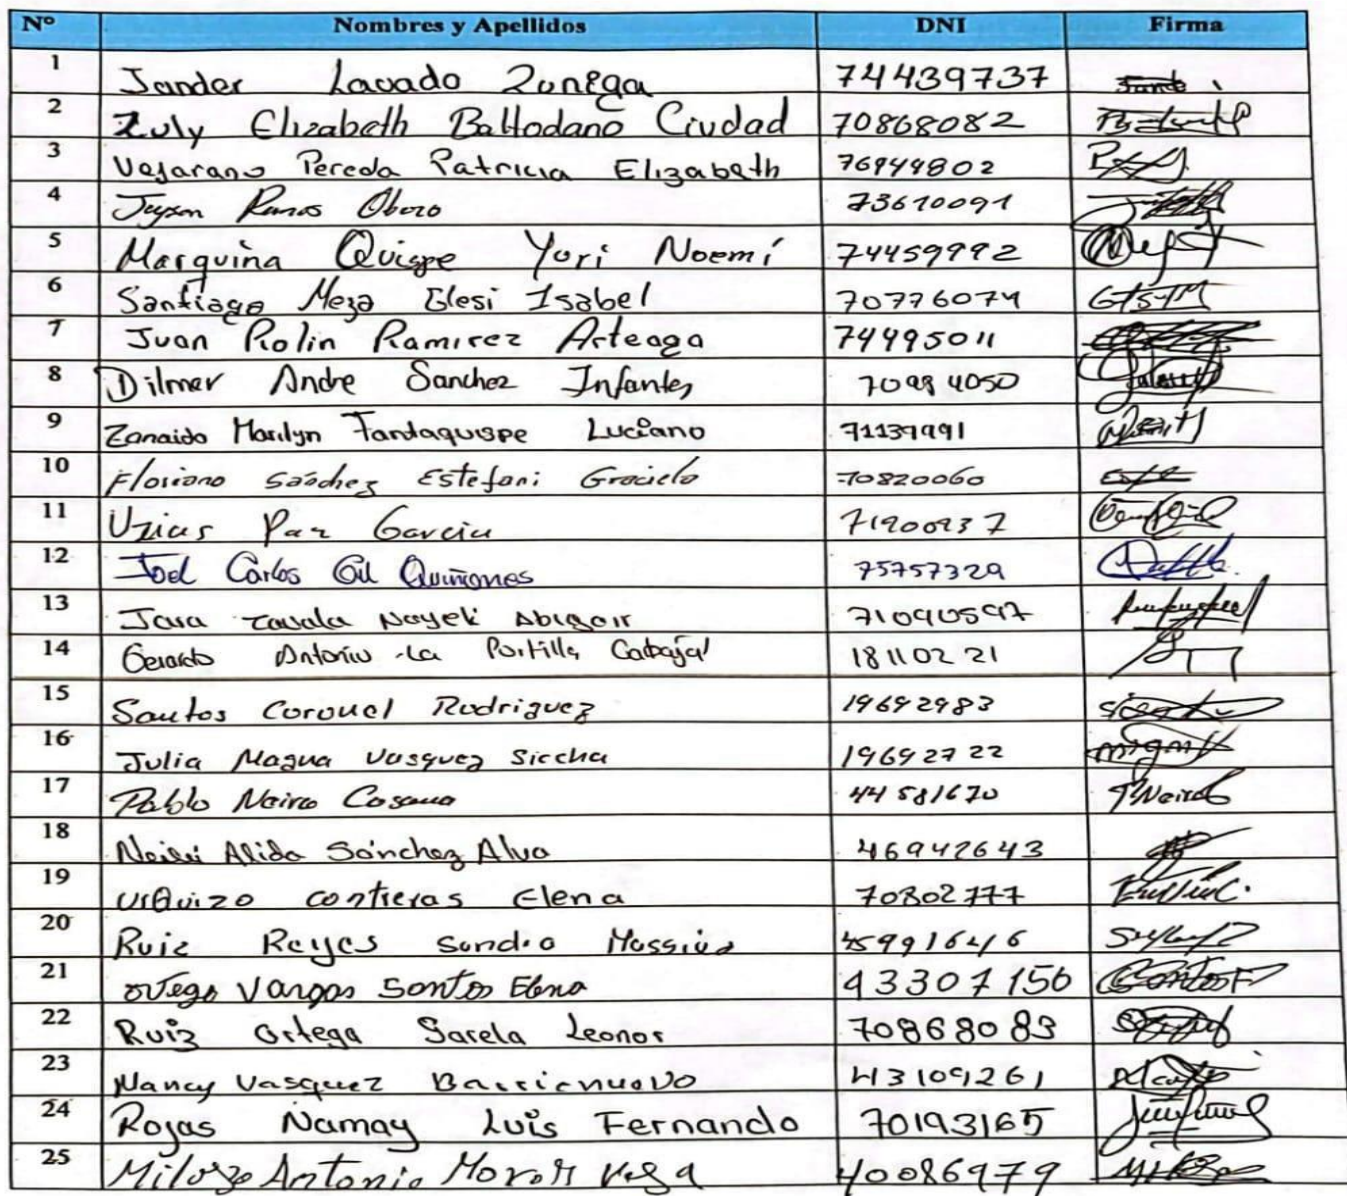 Nº Nombres y Apellidos DNI Firma
1 Jander Lavado Zuñiga 74439737
2 Zuly Elizabeth Baltodano Ciudad 70868082
3 Vejarano Pereda Patricia Elizabeth 76944802
4 Jeyson Ramos Obezo 73610091
5 Marquina Quispe Yuri Noemí 74459992
6 Santiago Meza Glesi Isabel 70776074 GISM
7 Juan Rolin Ramirez Arteaga 74495011
8 Dilmer Andre Sanchez Infantes 70984050
9 Zanaida Marilyn Tantaquispe Luciano 71139991
10 Floriano Sánchez Estefani Graciela 70820060
11 Uzias Paz Garcia 71900937
12 Joel Carlos Gil Quiñones 75757329
13 Jara Zavala Nayeli Abigair 71090597
14 Gerardo Antonio La Portilla Carbajal 18110221
15 Santos Coronel Rodriguez 19692983
16 Julia Magna Vasquez Siccha 19692722
17 Pablo Neira Casana 44581670 PNeiraC
18 Neisi Alida Sánchez Alva 46942643
19 Urquizo contreras Elena 70802777
20 Ruiz Reyes Sandra 45991646
21 ortega Vargas Santos Elena 43307156
22 Ruiz Ortega Sarela Leonor 70868083
23 Nancy Vasquez Barrionuevo 43109261
24 Rojas Namay Luis Fernando 70193165
25 Antonio Vega 40086979